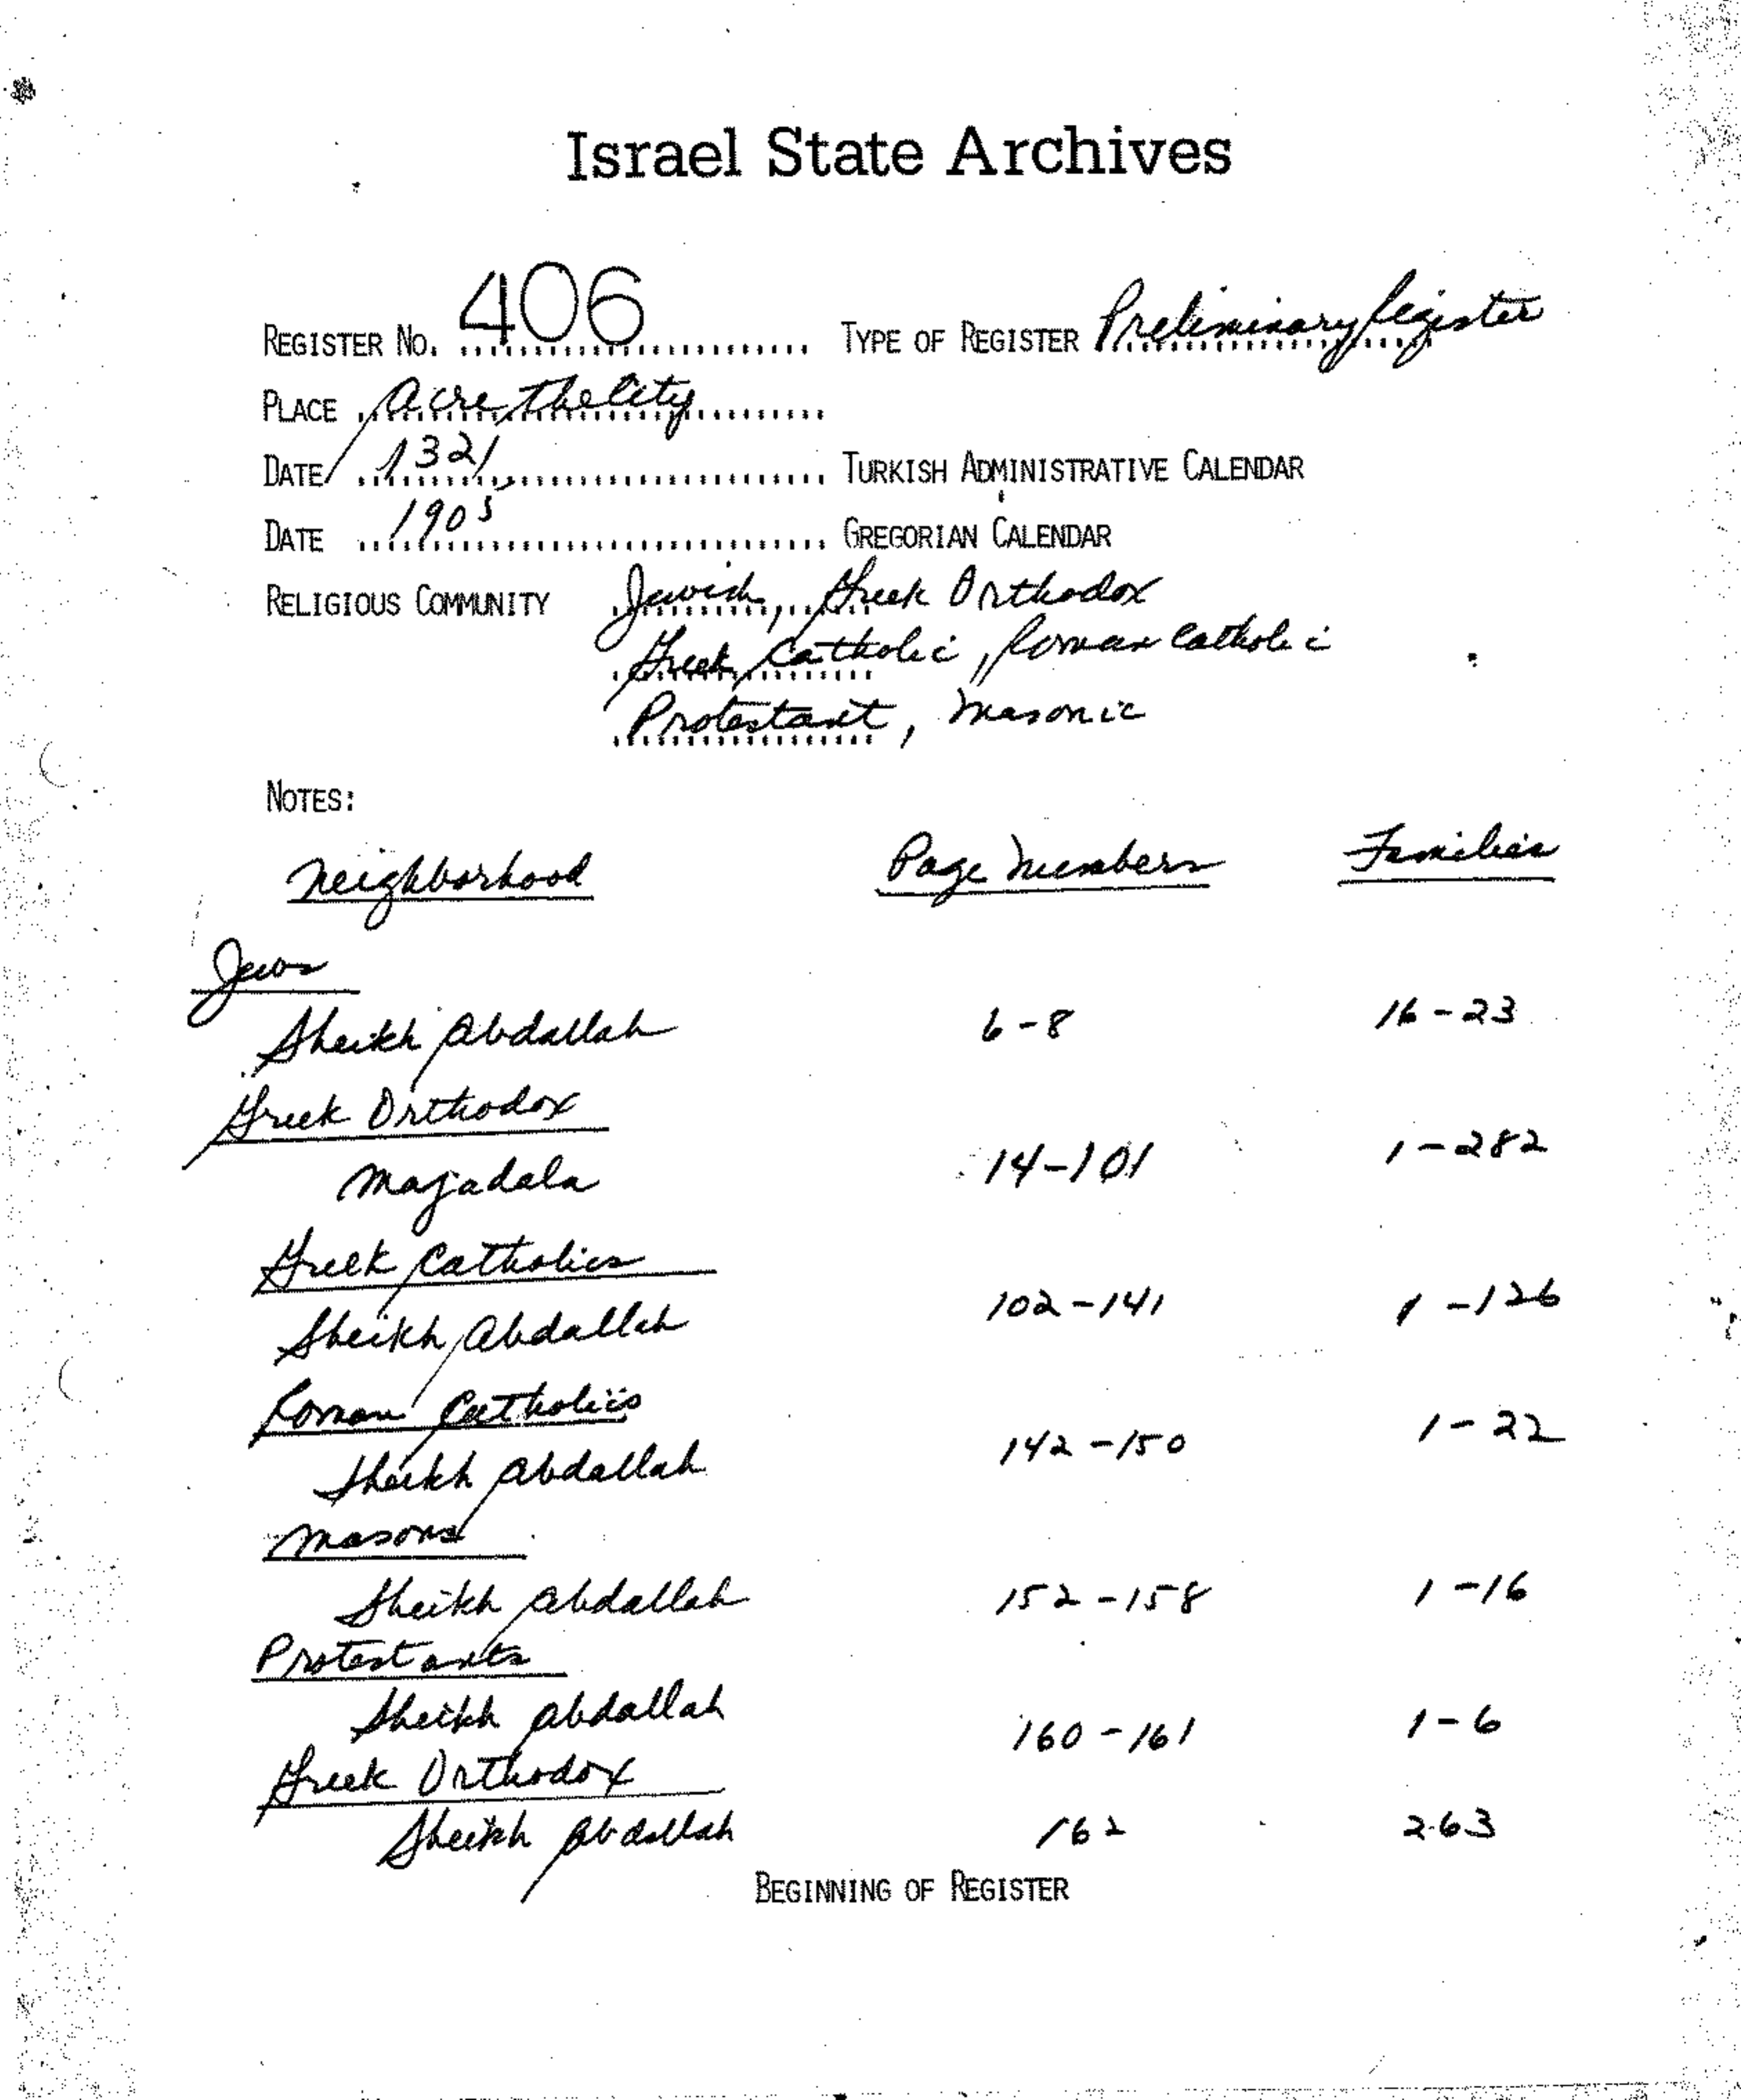 Israel State Archives
REGISTER NO. 406 TYPE OF REGISTER Preliminary Register
PLACE Acre, The City
DATE 1321 TURKISH ADMINISTRATIVE CALENDAR
DATE 1905 GREGORIAN CALENDAR
RELIGIOUS COMMUNITY Jewish, Greek Orthodox
Greek Catholic, Roman Catholic
Protestant, Masonic
NOTES:
Neighborhood Page Numbers Families
Jews
Sheikh Abdallah 6-8 16-23
Greek Orthodox
Majadala 14-101 1-282
Greek Catholics
Sheikh Abdallah 102-141 1-126
Roman Catholics
Sheikh Abdallah 142-150 1-22
Masons
Sheikh Abdallah 152-158 1-16
Protestants
Sheikh Abdallah 160-161 1-6
Greek Orthodox
Sheikh Abdallah 162 263
BEGINNING OF REGISTER